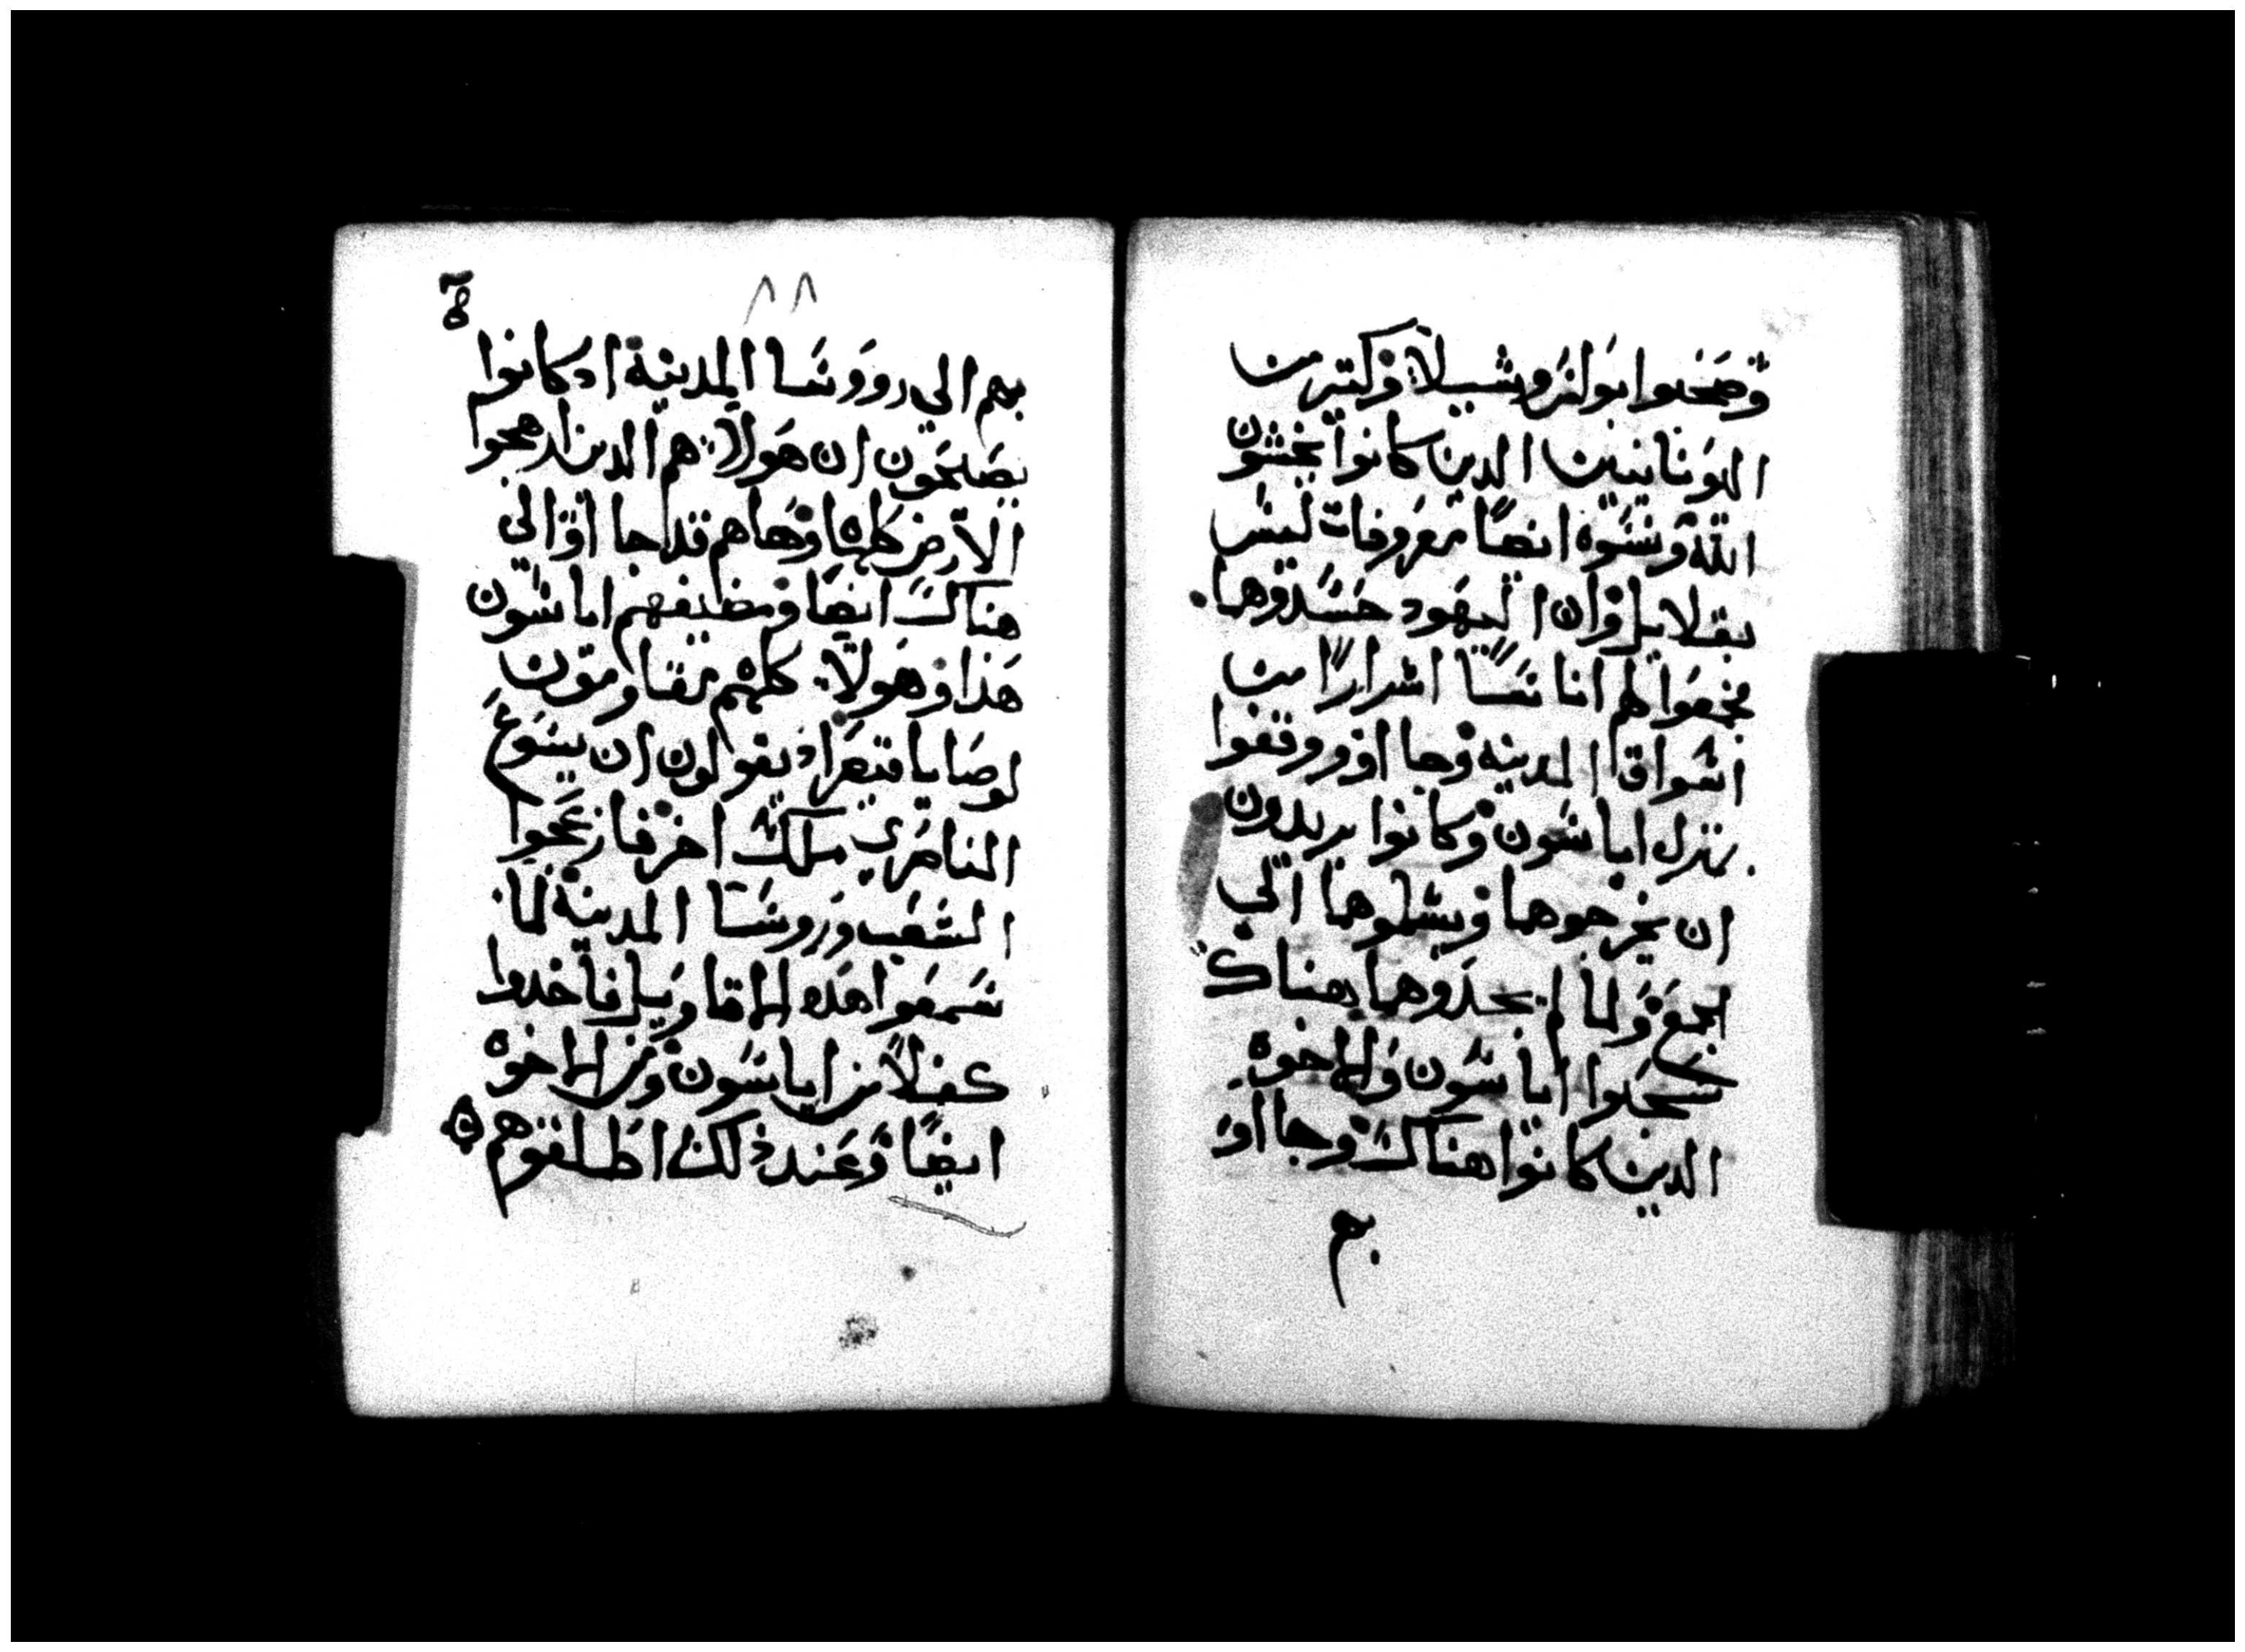 وصحبوا بولس وشيلا وكتير من
اليونانيين الدين كانوا يخشون
الله ونسوه ايضًا معروفات ليس
بقلايل وان اليهود حسدوهما
فجمعوا لهم اناسًا اشرارًا من
اسواق المدينه وجااوو ووقفوا
بمنزل اياسون وكانوا يريدون
ان يخرجوهما ويسلموهما الي
الجمع ولما لم يجدوهما هناك
سحبوا اياسون والاخوه
الدين كانوا هناك وجااو
بهم
٨٨
بهم الي رووسا المدينة ادكانوا
يصيحون ان هولاء هم الدين ارهجوا
الارض كلها وهاهم قد جااوا الي
هناك ايضا ومضيفهم اياسون
هذا وهولاء كلهم مقاومون
لوصايا قيصر اذ يقولون ان يسوع
الناصري ملك اخر فازعجوا
الشعب ورووسا المدينة لما
سمعوا هذه الاقاويل فاخدوا
كفيلًا من اياسون ومن الاخوه
ايضًا وعند ذلك اطلقوهم